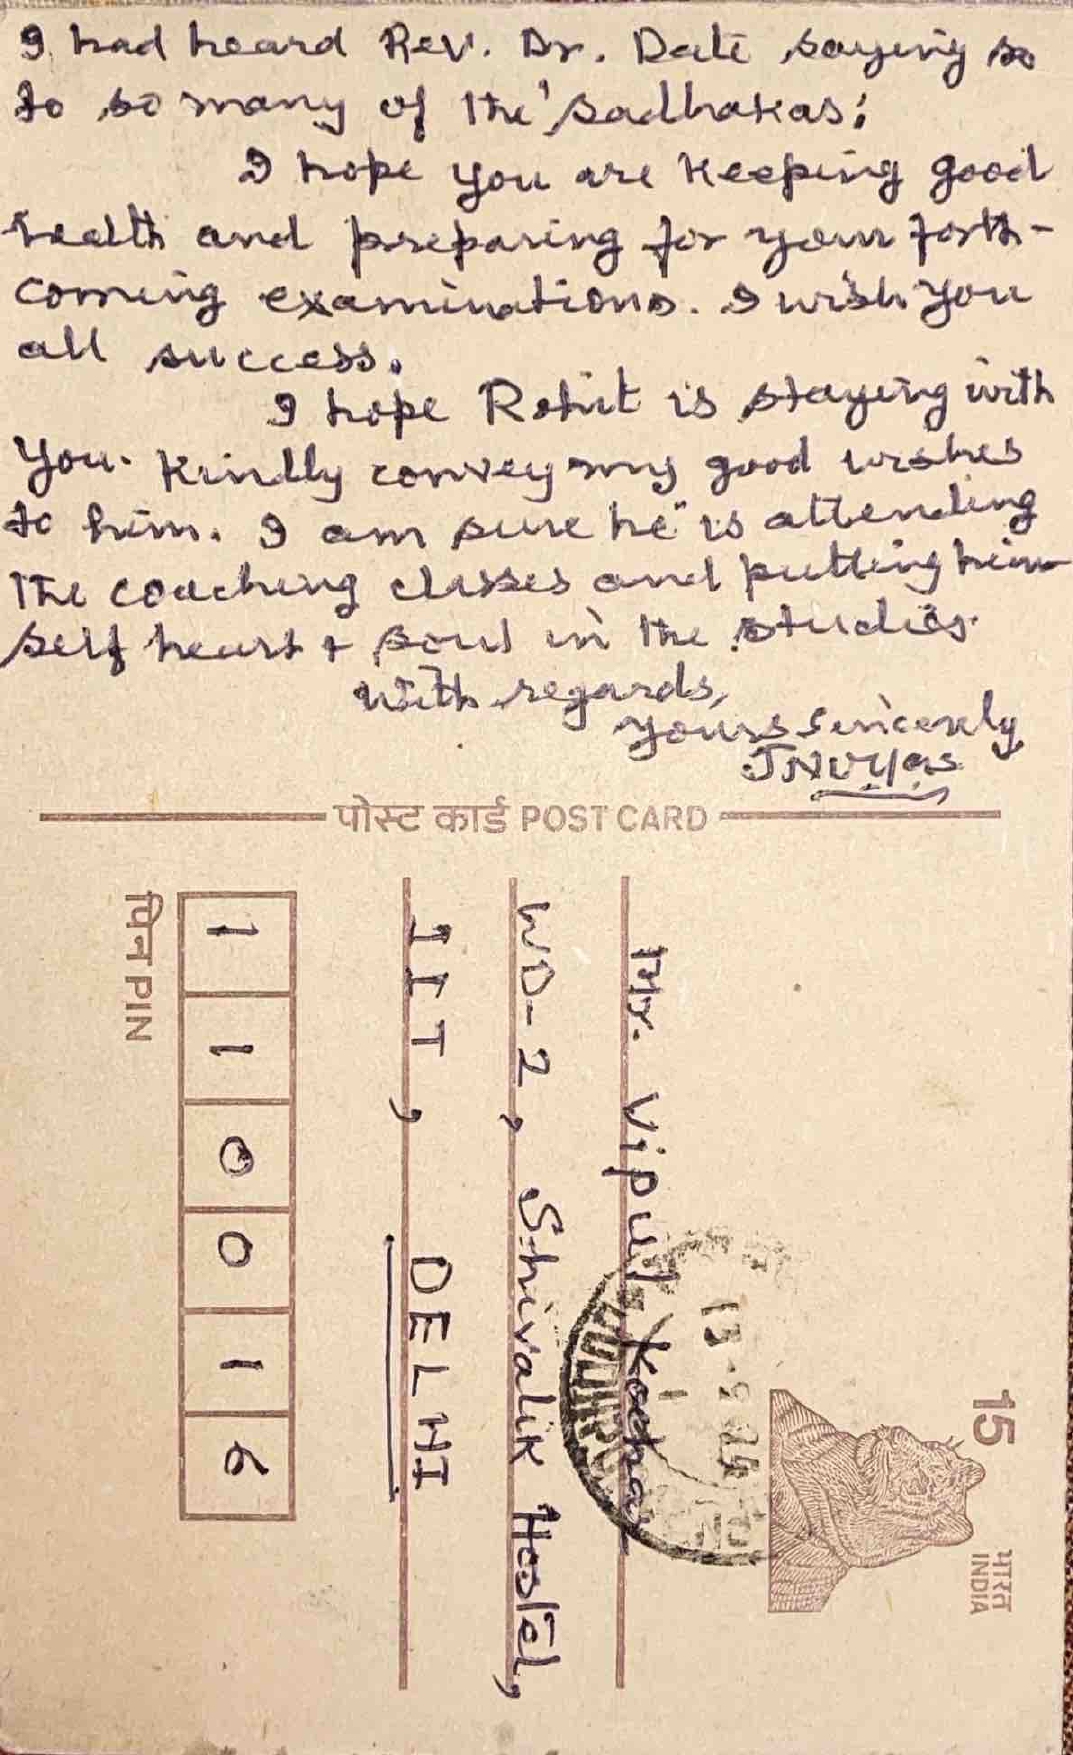 I had heard Rev. Dr. Date saying so
to so many of the 'sadhakas;
I hope you are keeping good
health and preparing for your forth-
coming examinations. I wish you
all success.
I hope Rohit is staying with
you. Kindly convey my good wishes
to him. I am sure he is attending
the coaching classes and putting him-
self heart & soul in the studies.
With regards,
yours sincerely
JNVyas
पोस्ट कार्ड POST CARD
15
भारत
INDIA
Mr. Vipul Kochar
WD-2, Shivalik Hostel,
IIT, DELHI
110016
पिन PIN